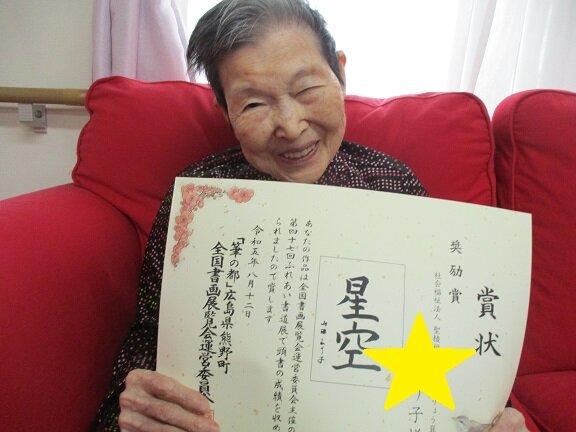 賞状
奨励賞
社会福祉法人 聖
子
星空
あなたの作品は全国書画展覧会運営委員会主催の
第四十七回ふれあい書道展で頭書の成績を収め
られましたので賞します
令和五年八月十二日
「筆の都」広島県熊野町
全国書画展覧会運営委員会